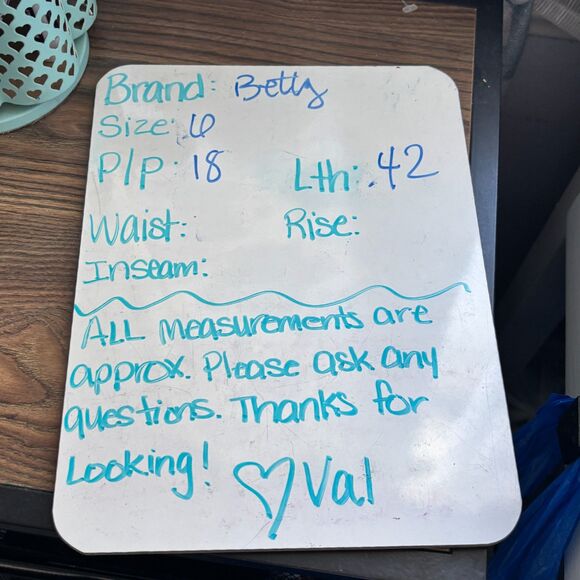 Brand: Betty
Size: 6
P/P: 18 Lth: 42
Waist: Rise:
Inseam:
ALL measurements are
approx. Please ask any
questions. Thanks for
Looking! ♡ Val